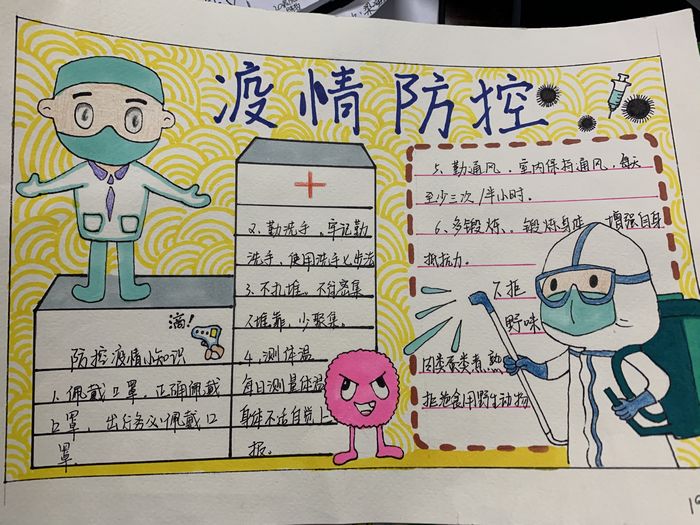 疫情防控
滴!
防控疫情小知识
1、佩戴口罩,正确佩戴
口罩,出行务必佩戴口
罩。
2、勤洗手、牢记勤
洗手,使用洗手七步法
3、不扎堆、不密集
不推靠,少聚集。
4、测体温
每日测量体温
身体不适自觉上
报。
5、勤通风、室内保持通风,每天
至少三次/半小时。
6、多锻炼、锻炼身体 增强自身
抵抗力。
不拒
野味
肉类蛋类煮熟
拒绝食用野生动物